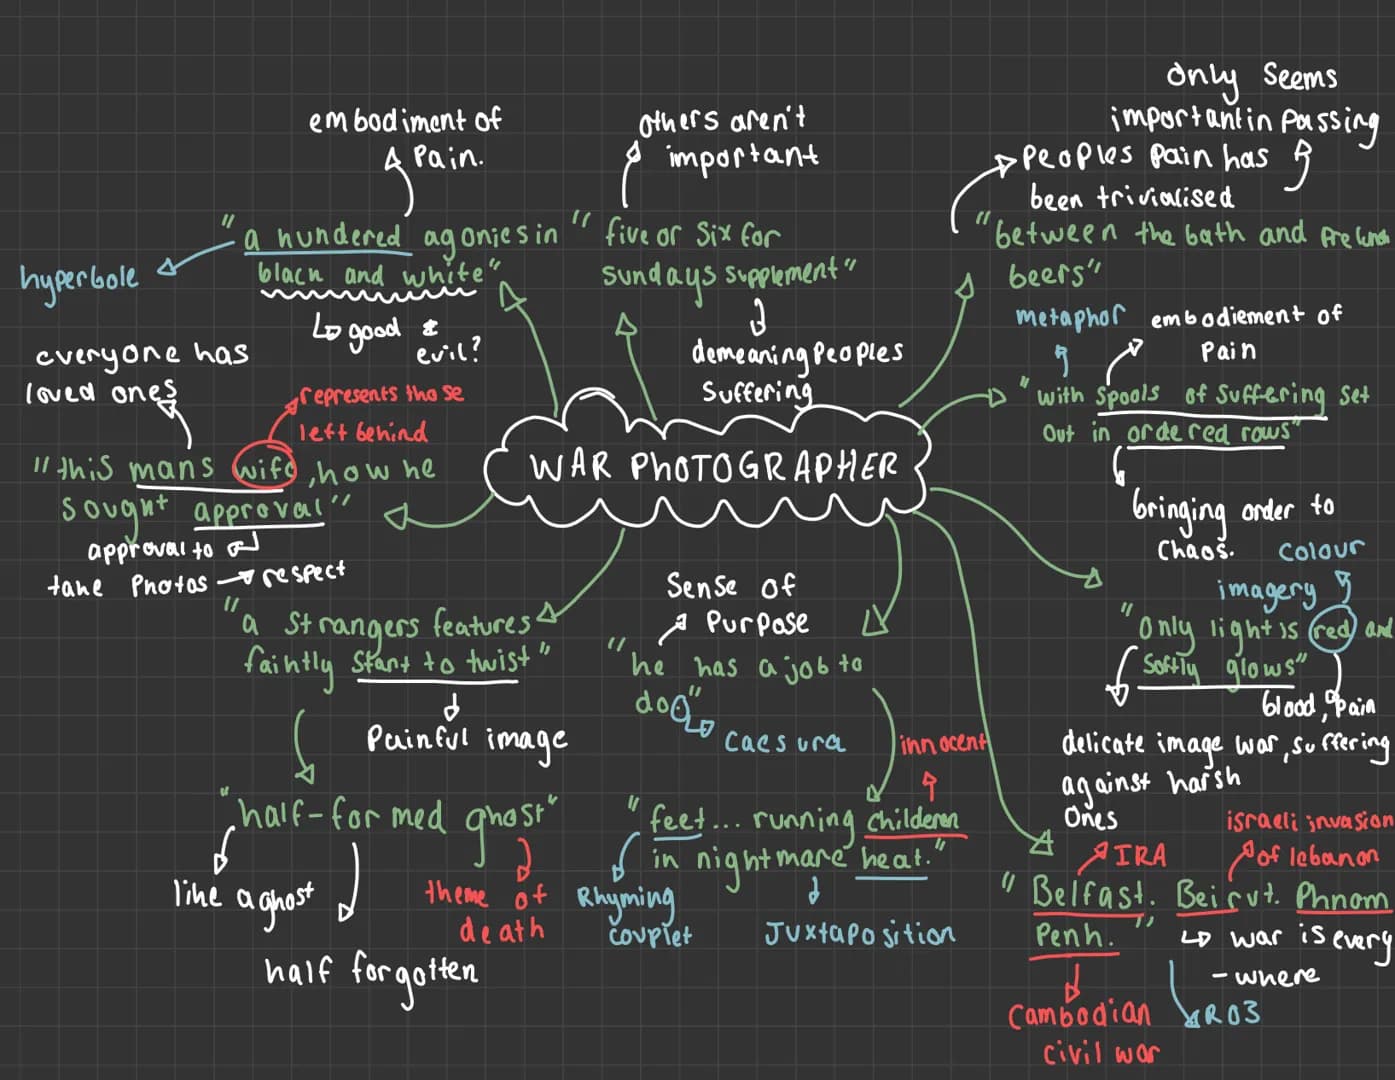 only seems
important in passing
embodiment of
Pain.
others aren't
important
Peoples Pain has
been trivialised
"a hundered agonies in
black and white"
hyperbole
good &
evil?
"five or six for
sundays supplement"
demeaning Peoples
Suffering
"between the bath and Prelunch
beers"
metaphor
embodiement of
Pain
"with Spools of Suffering Set
Out in ordered rows"
bringing order to
Chaos.
everyone has
loved ones
represents those
left behind
"this mans wife, how he
Sought approval"
approval to
take Photos → respect
WAR PHOTOGRAPHER
"a Strangers features
faintly start to twist"
Painful image
"half-formed ghost"
like a ghost
half forgotten
theme of
death
Sense of
Purpose
"he has a job to
do."
Caesura
innocent
"feet... running childeren
in nightmare heat."
Rhyming
couplet
Juxtaposition
Colour
imagery
"Only light is red and
Softly glows"
blood, pain
war, suffering
delicate image
against harsh
Ones
IRA
israeli invasion
of lebanon
"Belfast. Beirut. Phnom
Penh."
war is every
-where
RO3
Cambodian
civil war